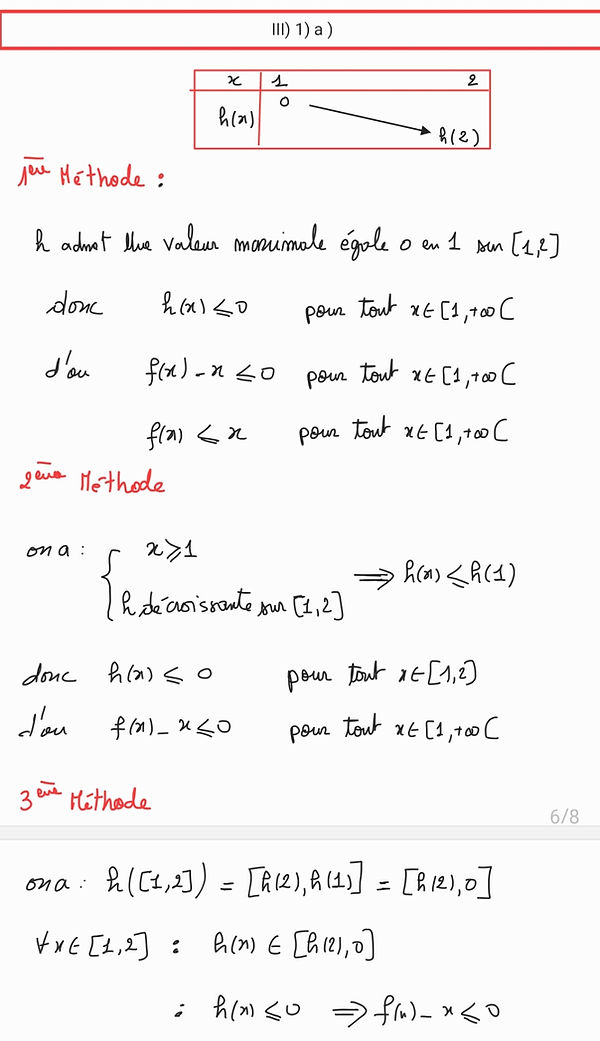 III) 1) a )
x 1 2
h(x) 0 h(2)
1ère Méthode :
h admet Une valeur maximale égale 0 en 1 sur [1,2]
donc h(x) ⩽ 0 pour tout x ∈ [1,+∞[
d'ou f(x) - x ⩽ 0 pour tout x ∈ [1,+∞[
f(x) ⩽ x pour tout x ∈ [1,+∞[
2ème Méthode
on a : { x ⩾ 1
h décroissante sur [1,2] ⟹ h(x) ⩽ h(1)
donc h(x) ⩽ 0 pour tout x ∈ [1,2]
d'ou f(x) - x ⩽ 0 pour tout x ∈ [1,+∞[
3ème Méthode
6/8
on a : h([1,2]) = [h(2),h(1)] = [h(2),0]
∀x ∈ [1,2] : h(x) ∈ [h(2),0]
: h(x) ⩽ 0 ⟹ f(x) - x ⩽ 0